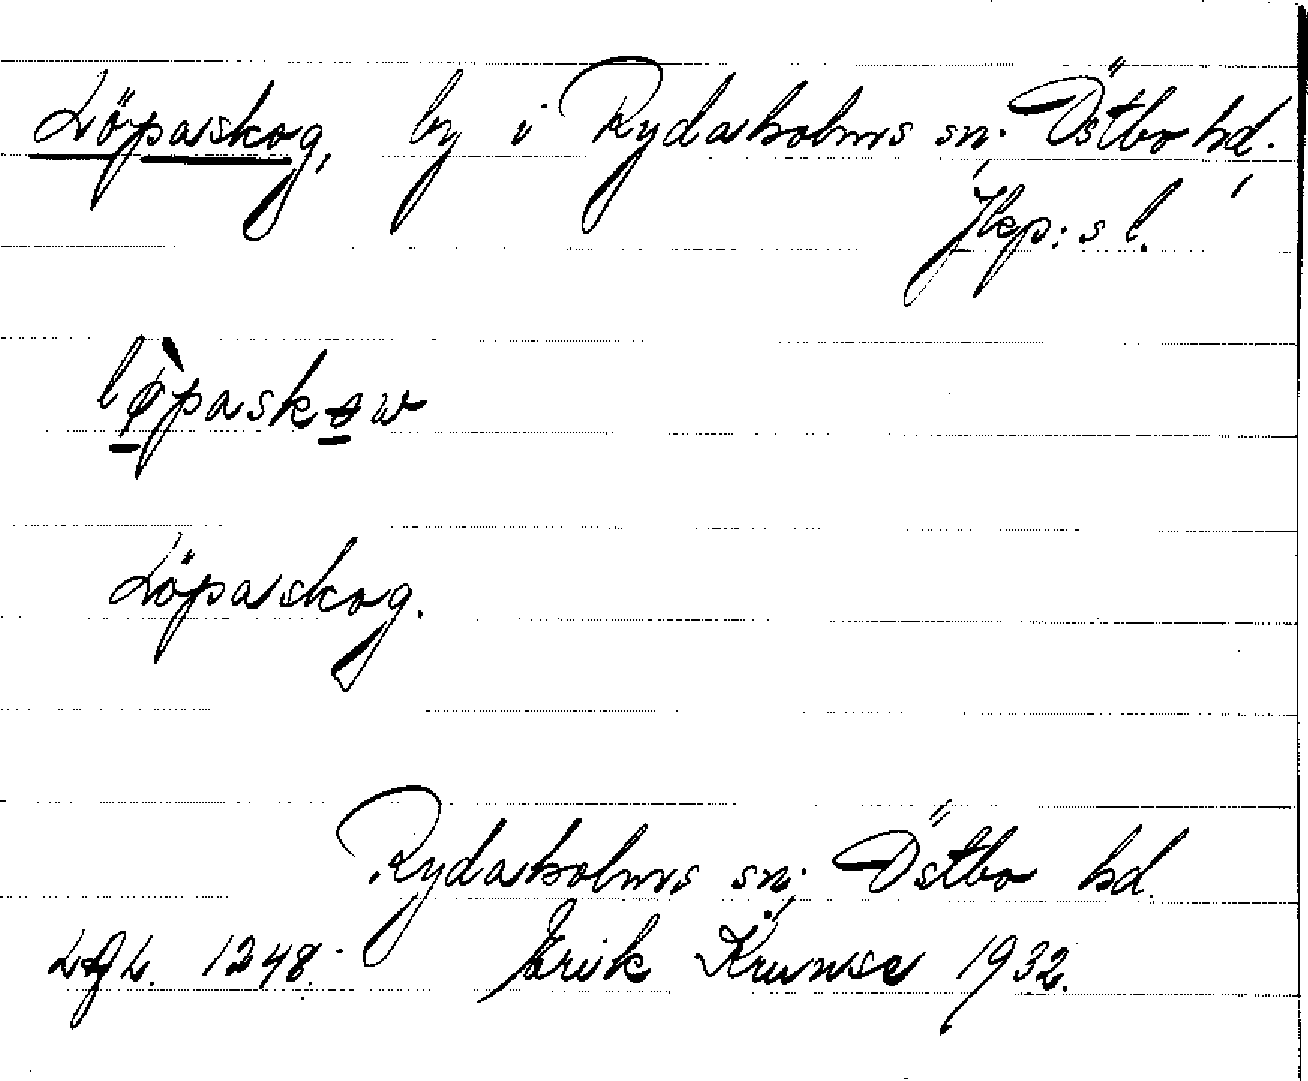 Löpaskog, by i Rydaholms sn, Östbo hd.,
Jkp:s l.
lø̀paskøw
Löpaskog.
Rydaholms sn, Östbo hd.
1248. Erik 1932.